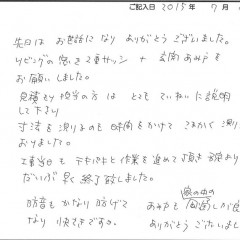 ご記入日 2015年 7月
先日は お世話になり ありがとうございました。
リビングの窓を2重サッシ + 玄関あみ戸を
お願いしました。
見積もり担当の方は とても ていねいに説明
して下さり
寸法を測るのも 時間をかけて こまかく 測り
おりました。
工事当日も テキパキと作業を進めて頂き
早く 終了致しました。
防音も かなり 防げて
なり 快適です。
家の中の
あみ戸も
ありがとうございまし